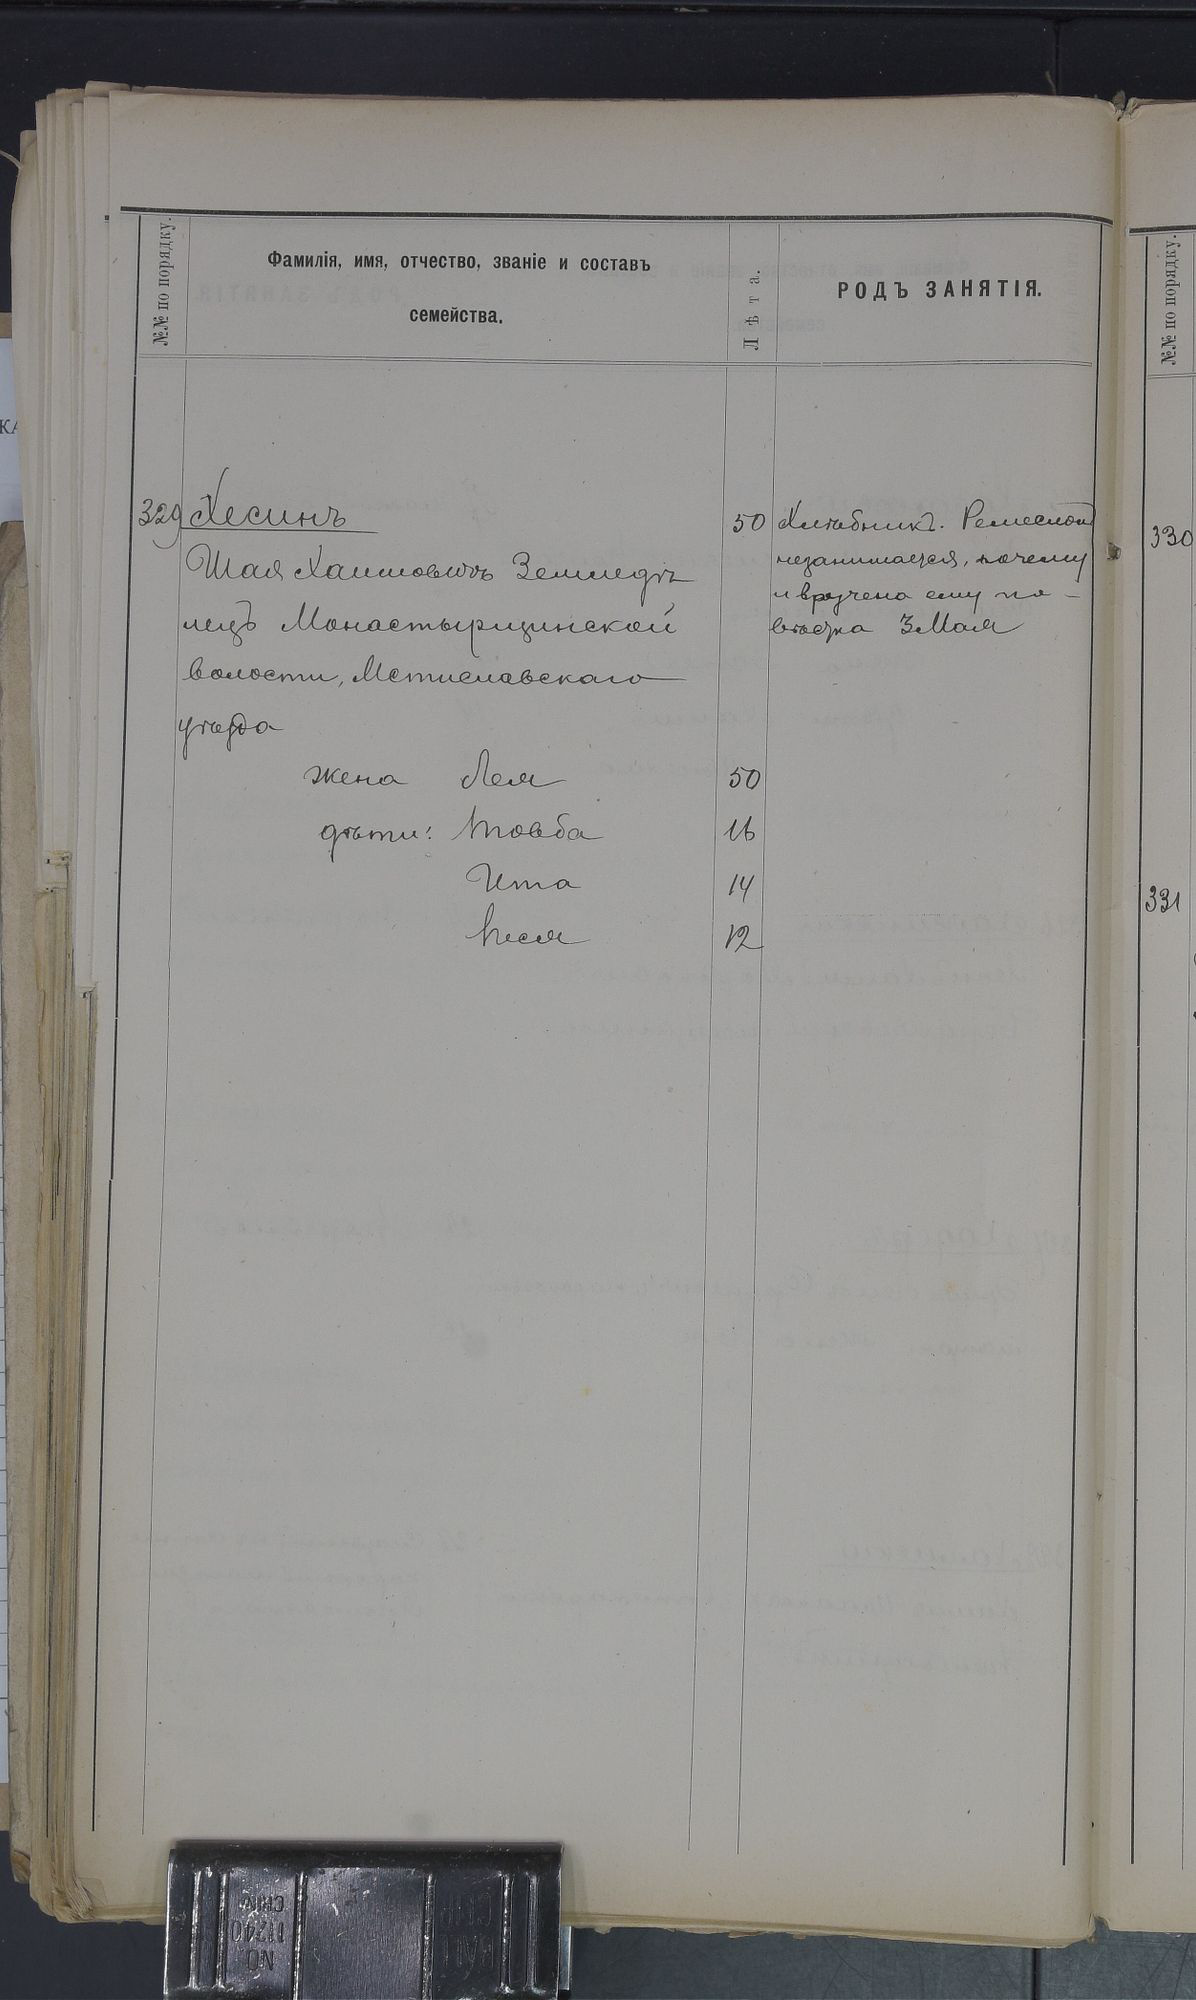 №№ по порядку.
Фамилія, имя, отчество, званіе и составъ
семейства.
Лѣта.
РОДЪ ЗАНЯТІЯ.
№№ по порядку.
329
Хесинъ
50
Хлѣбникъ. Ремесломъ
330
Шая Хаимовичъ Земледѣ
незанимается, почему
и вручена ему по-
лецъ Монастырщинской
вѣстка 3 Мая
волости, Мстиславскаго
уѣзда
жена Лея
50
дѣти: Товба
16
Ита
14
331
Песя
12